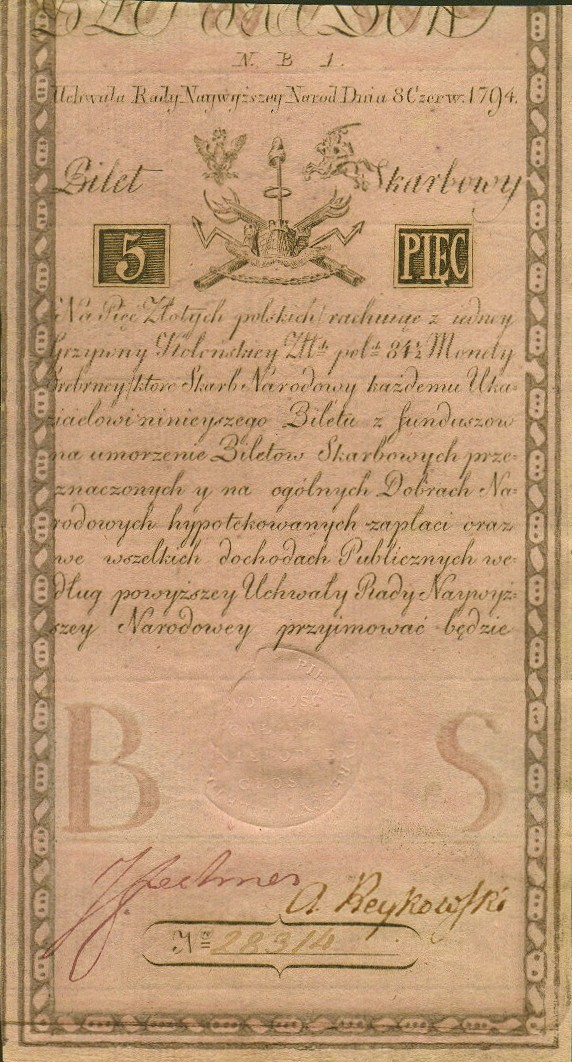 N. B 1.
Uchwała Rady Naywyższey Narod Dnia 8 Czerw. 1794.
Bilet Skarbowy
5 PIĘC
Na Pięć Złotych polskich rachuiąc z iedney
Grzywny Kolońskiey Złt. pol. 84½ Monety
Srebrney, które Skarb Narodowy każdemu Uka-
zicielowi ninieyszego Biletu z funduszow
na umorzenie Biletów Skarbowych prze-
znaczonych y na ogólnych Dobrach Na-
rodowych hypotékowanych zapłaci oraz
we wszelkich dochodach Publicznych we-
dług powyższey Uchwały Rady Naywyż-
szey Narodowey przyimować będzie
WOLNOŚĆ
CAŁOŚĆ
B S
A Reykowski
N° 28314